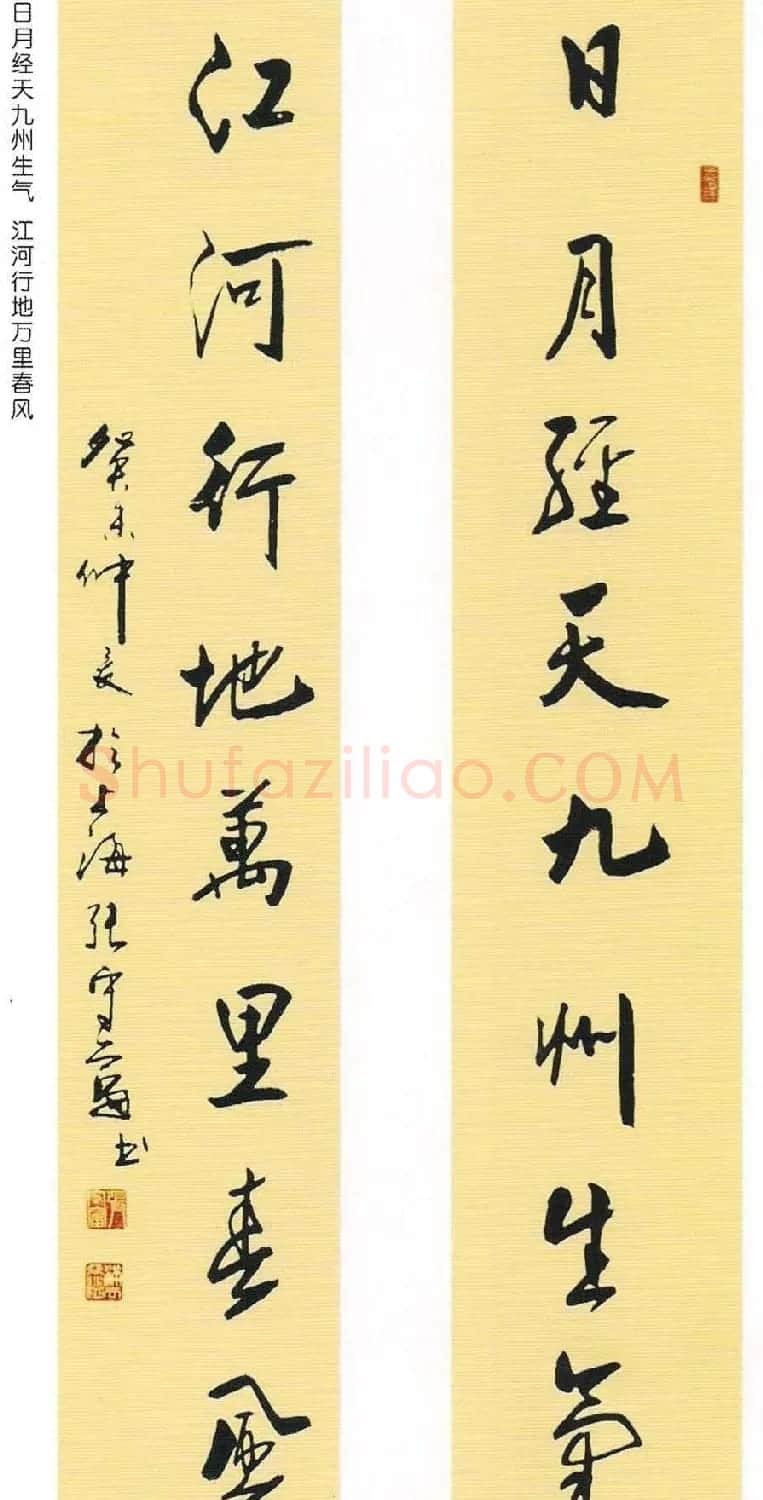 日月经天九州生气 江河行地万里春风
日月經天九州生氣
江河行地萬里春風
癸未仲夏於上海張守富书
Shufaziliao.COM